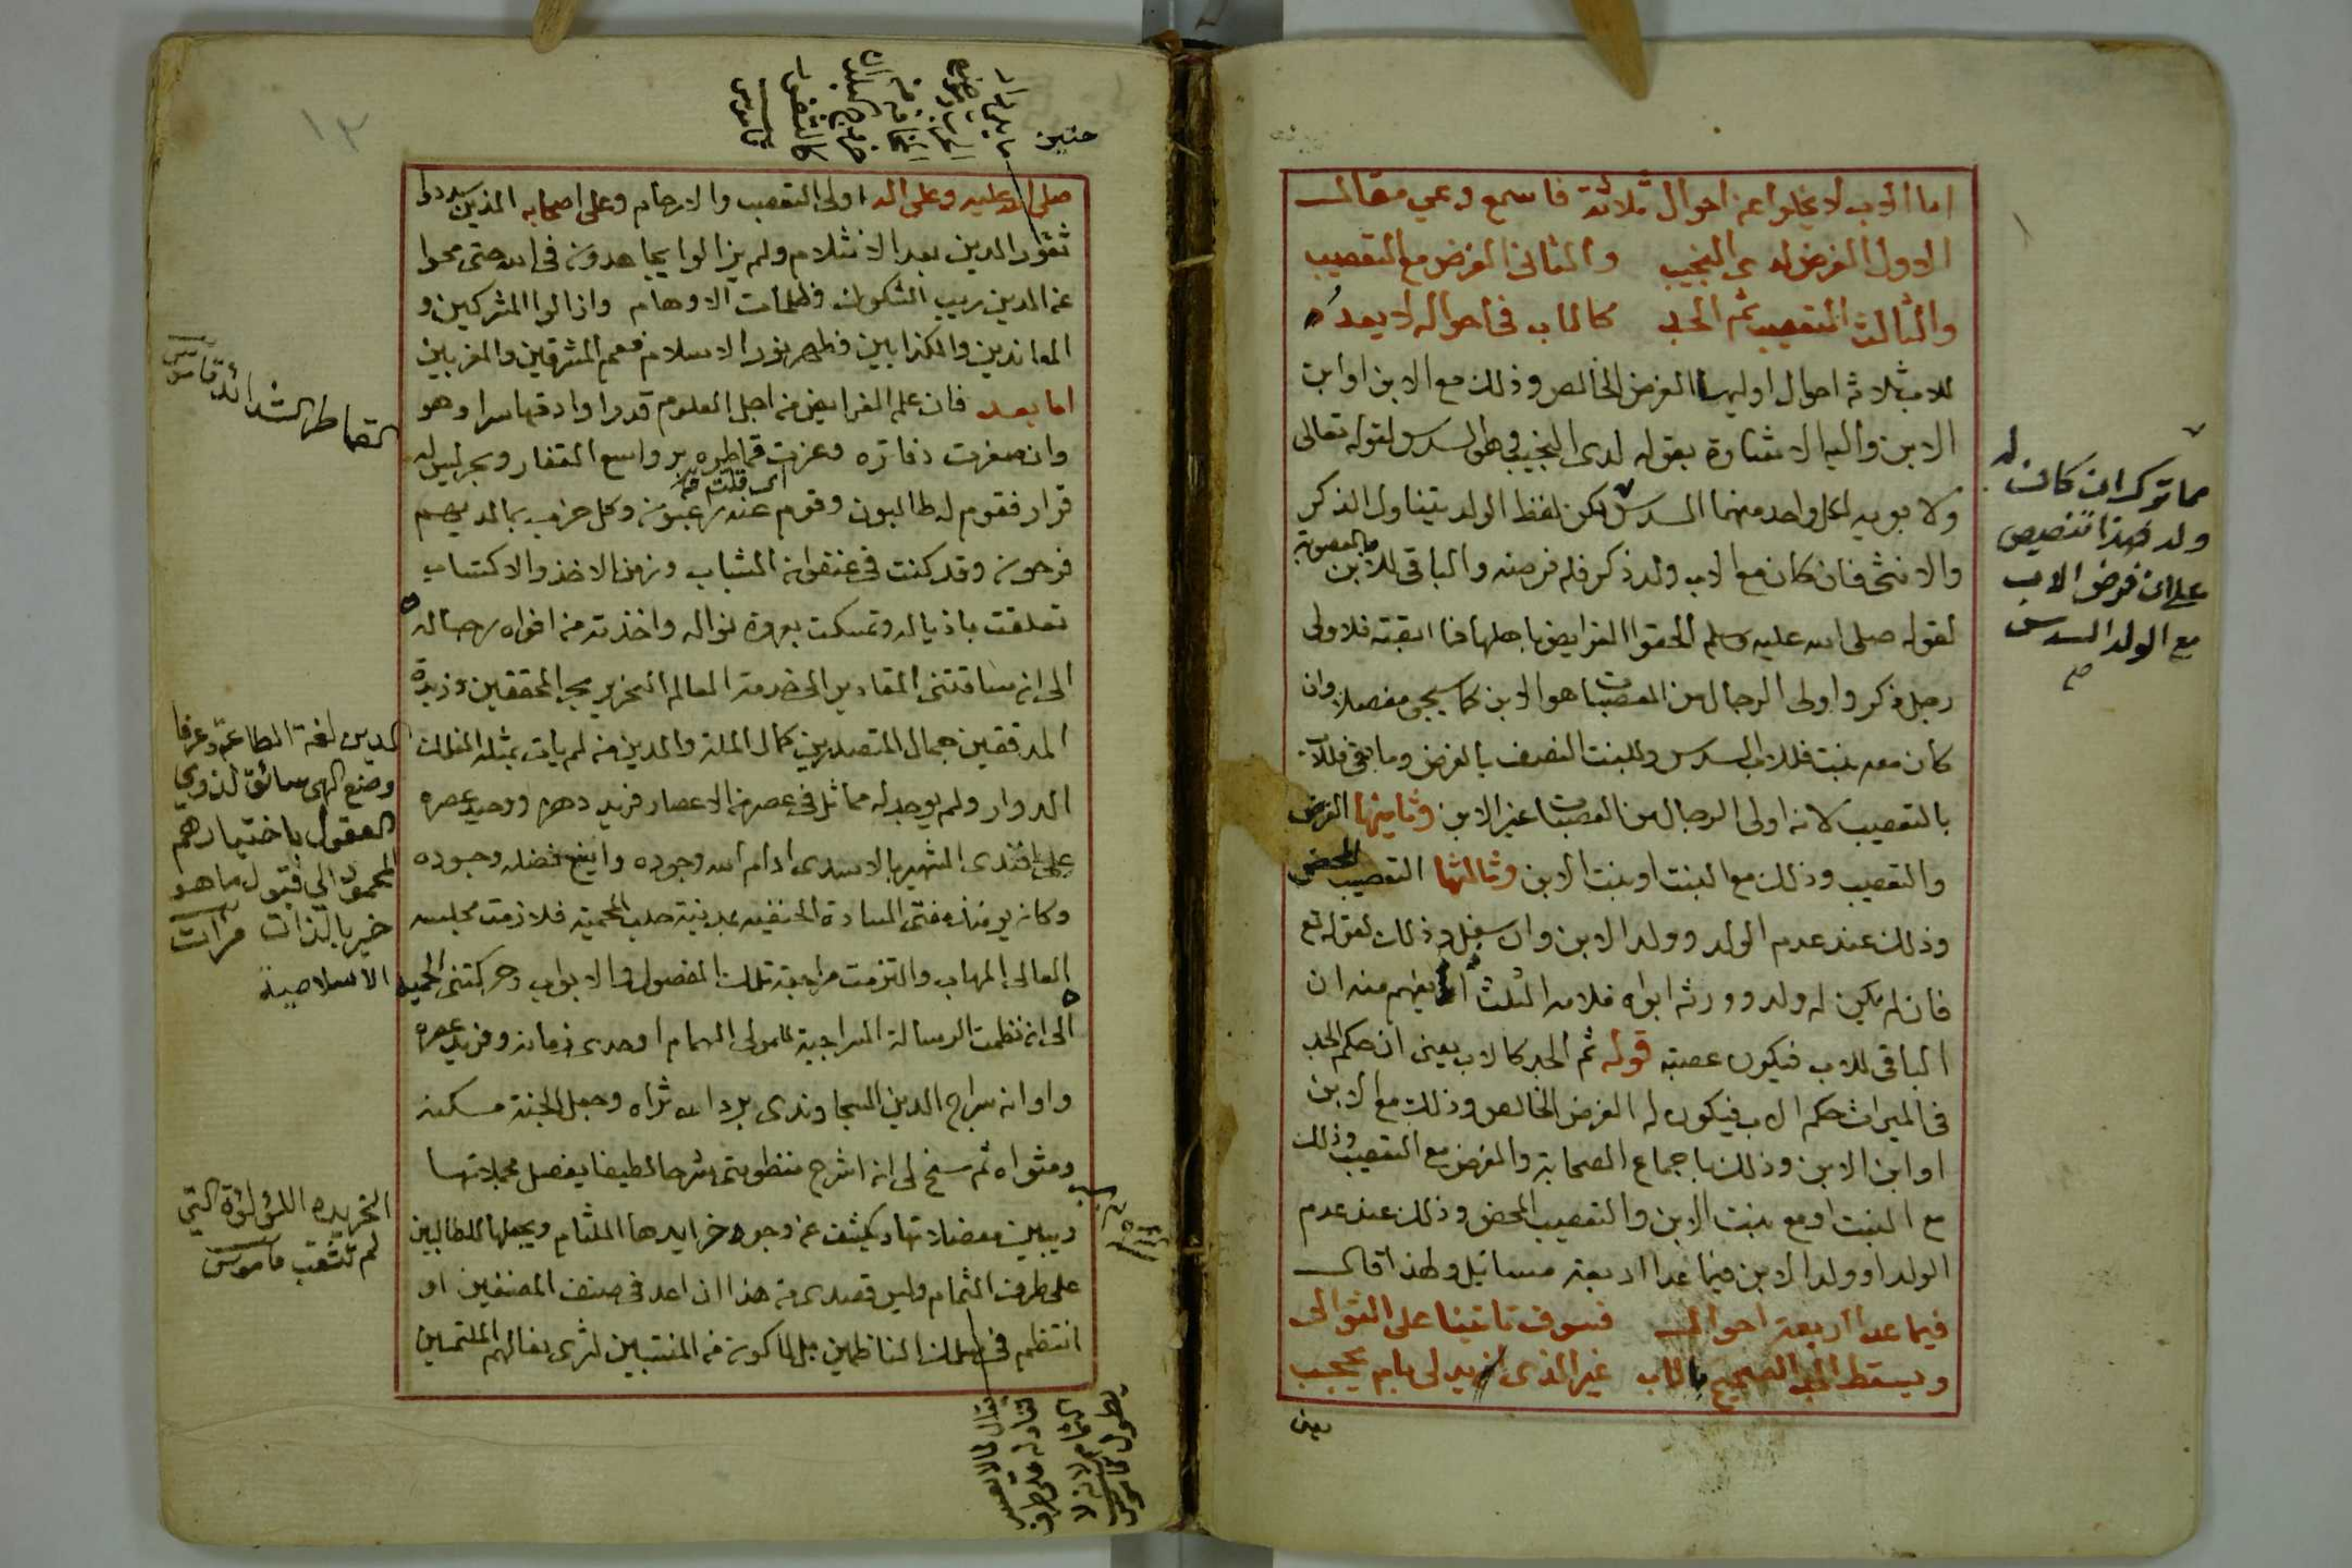 اما الاب لا يخلوا عن احوال ثلاثة فاسمع وعي مقالي
الاول الفرض لدى النجيب والثانى الفرض مع التعصيب
والثالث التعصيب ثم الجد كالاب فى احواله لا يعد
للاب ثلاثة احوال اوليها الفرض الخالص وذلك مع الابن او ابن
الابن واليه الاشارة بقوله لدى النجيب وهو السدس لقوله تعالى
ولابويه لكل واحد منهما السدس لكن لفظ الولد يتناول الذكر
والانثى فان كان مع الاب ولد ذكر فله فرضه والباقى للابن بالعصوبة
لقوله صلى الله عليه وسلم الحقوا الفرايض باهلها فما ابقته فلاولى
رجل ذكر واولى الرجال من العصبات هو الابن كما سيجى مفصلا وان
كان معه بنت فللاب السدس وللبنت النصف بالفرض وما بقى فللاب
بالتعصيب لانه اولى الرجال من العصبات غير الابن وثانيتها الفرض
والتعصيب وذلك مع البنت او بنت الابن وثالثها التعصيب المحض
وذلك عند عدم الولد وولد الابن وان سفل وذلك لقوله تع
فان لم يكن له ولد وورثه ابواه فلامه الثلث يفهم منه ان
الباقى للاب فيكون عصبة قوله ثم الجد كالاب يعنى ان حكم الجد
فى الميراث حكم الاب فيكون له الفرض الخالص وذلك مع الابن
او ابن الابن وذلك باجماع الصحابة والفرض مع التعصيب وذلك
مع البنت او مع بنت الابن والتعصيب المحض وذلك عند عدم
الولد او ولد الابن فيما عدا اربعة مسائل ولهذا قال
فيما عدا اربعة احوال فسوف تاتينا على التوالى
ويسقط الجد الصحيح بالاب غير الذى يدلى بام يحجب
يعنى
مما ترك ان كان له
ولد فهذا تنصيص
على ان فرض الاب
مع الولد السدس
صح
١٣
صلى الله عليه وعلى اله اولى التعصيب والارحام وعلى اصحابه الذين سددوا
ثغور الدين بعد الانثلام ولم يزالوا يجاهدون فى الله حتى محوا
عن الدين ريب الشكوك وظلمات الاوهام وازالوا المشركين و
المعاندين والكذابين فظهر نور الاسلام فعم المشرقين والمغربين
اما بعد فان علم الفرايض من اجل العلوم قدرا وادقها سرا وهو
وان صغرت دفاتره وعزت قماطره بر واسع القفار وبحر ليس له
قرار فقوم له طالبون وقوم عنه راغبون وكل حزب بما لديهم
فرحون وقد كنت فى عنفوان الشباب وزمن الاخذ والاكتساب
تعلقت باذياله وتمسكت بعروة نواله واخذته من افواه رجاله
الى ان ساقتنى المقادير الى خدمة العالم النحرير محيى المحققين وزبدة
المدققين جمال المتصدرين كمال الملة والدين من لم يات بمثله الفلك
الدوار ولم يوجد له مماثل فى عصر من الاعصار فريد دهره ووحيد عصره
على افندى الشهير بالاسدى ادام الله وجوده وافضل فضله وجوده
وكان يومئذ مفتى السادة الحنفيه بمدينة حلب المحمية فلازمت مجلسه
العالى المهاب والتزمت مراجعة تلك الفصول والابواب وحركتنى الحمية
الى ان نظمت الرسالة السراجية للمولى الهمام اوحدى زمانه وفريد عصره
واوانه سراج الدين السجاوندى برد الله ثراه وجعل الجنة مسكنه
ومثواه ثم سنح لى ان اشرح منظومتى شرحا لطيفا يفصل مجملاتها
ويبين معضلاتها ويكشف عن وجوه خرايدها اللثام ويجعلها للطالبين
على طرف الثمام وليس قصدى من هذا ان اعد فى صنف المصنفين او
انتظم فى سلك الناظمين بل لاكون من المنتسبين لثرى نعالهم الملتمسين
القماطر الشدائد قاموس
الدين لغة الطاعة وعرفا
وضع الهى سائق لذوي
العقول باختيارهم
المحمود الي قبول ما هو
خير بالذات مرآت
الاسلامية
الخريده اللؤلؤة التي
لم تثقب قاموس